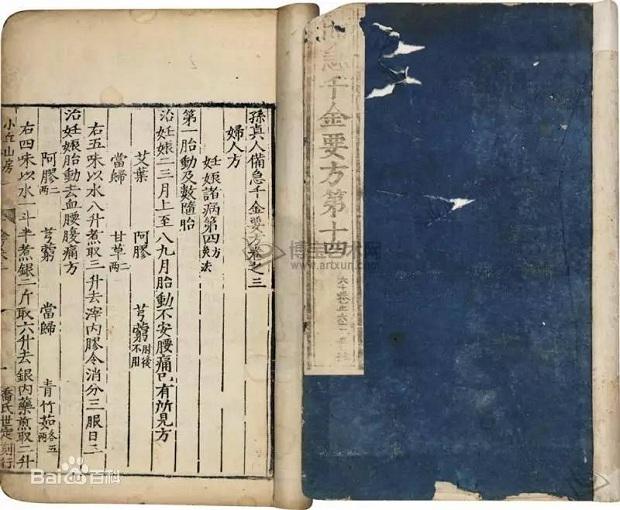 急千金要方第十四
孫真人備急千金要方卷之三
婦人方
妊娠諸病第四
第一胎動及數墮胎
治妊娠二三月上至八九月胎動不安腰痛已有所見方
艾葉 阿膠 芎藭肘後不用
當歸 甘草
右五味以水八升煮取三升去滓内膠令消分三服日三
治妊娠胎動去血腰腹痛方
阿膠 芎藭 當歸 青竹茹
右四味以水一斗半煮銀二斤取六升去銀内藥煎取二升
小丘山房
喬氏世定刻行
博宝艺术网
www.artxun.com
Baidu百科